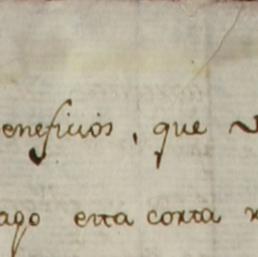 eneficios, que
ago esta corta